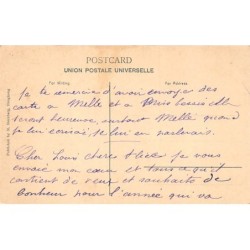 POSTCARD
UNION POSTALE UNIVERSELLE
For Writing
For Address
Je te remercie d'avoir envoyé des
carte a Melle et a
seront heureuse, surtout Melle quand
je lui écrivais, je lui en parlerais.
Cher Louis chere Alice je vous
envoie mon cœur et tous a qu'il
contient de vœux et souhaits de
bonheur pour l'année qui va